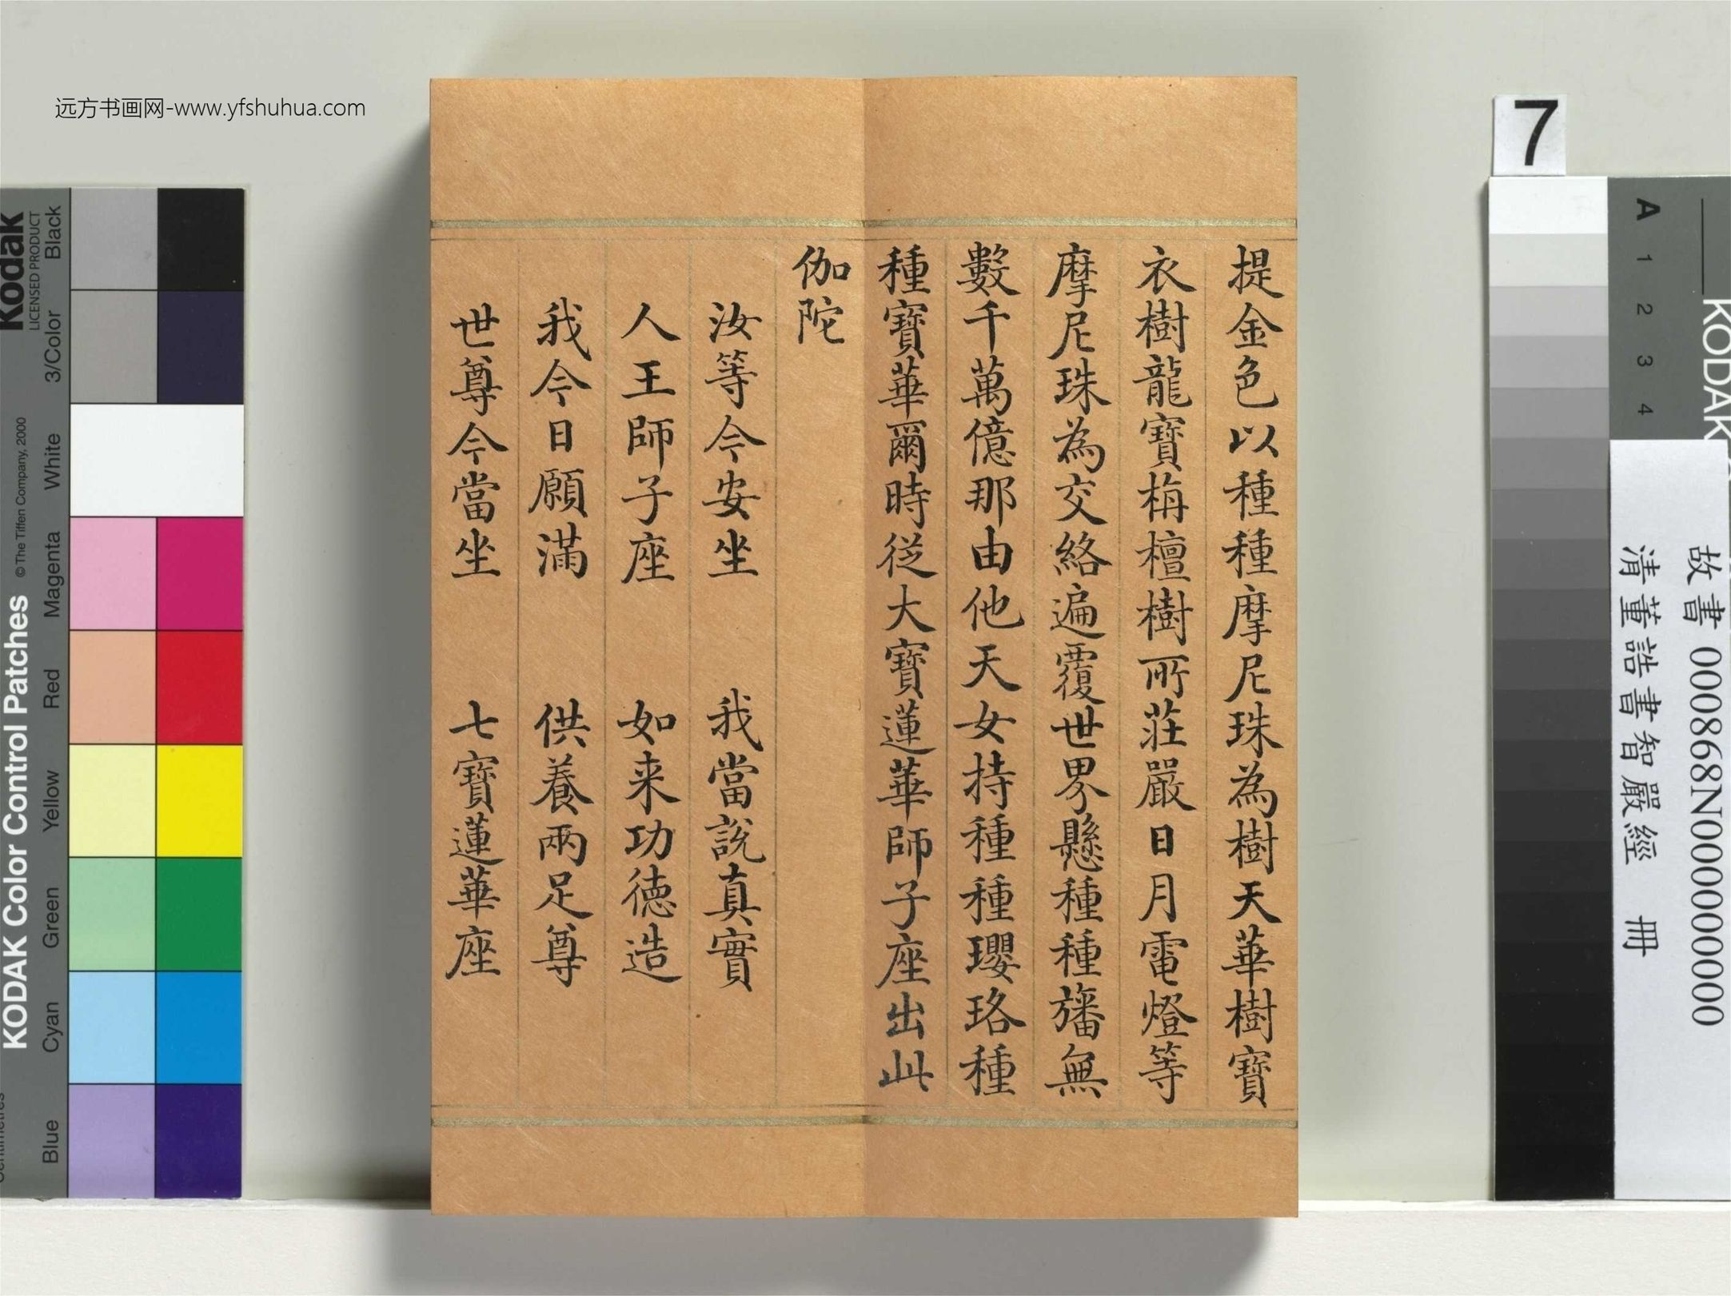 远方书画网-www.yfshuhua.com
提金色以種種摩尼珠為樹天華樹寶
衣樹龍寶栴檀樹所莊嚴日月電燈等
摩尼珠為交絡遍覆世界懸種種旛無
數千萬億那由他天女持種種瓔珞種
種寶華爾時從大寶蓮華師子座出此
伽陀
汝等今安坐 我當說真實
人王師子座 如来功德造
我今日願滿 供養兩足尊
世尊今當坐 七寶蓮華座
7
故書 000868N000000000
清董誥書智嚴經 冊
A 1 2 3 4
KODAK
Kodak
LICENSED PRODUCT
KODAK Color Control Patches
©The Tiffen Company, 2000
Blue Cyan Green Yellow Red Magenta White 3/Color Black